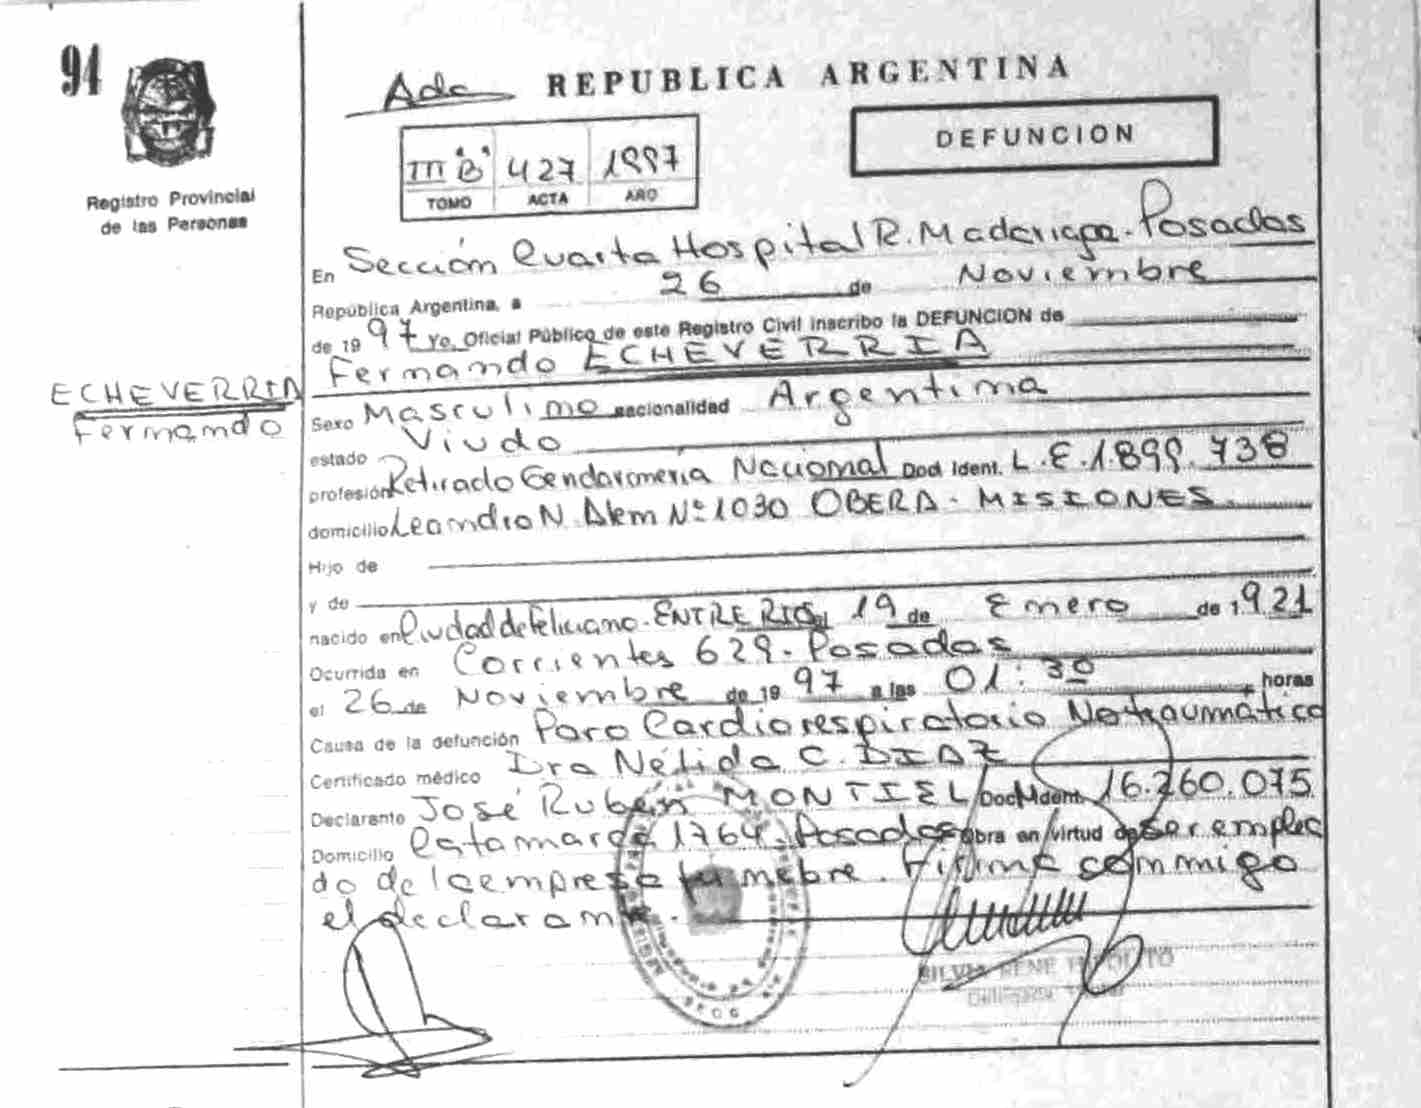 94
Registro Provincial
de las Personas
Ada
REPUBLICA ARGENTINA
DEFUNCION
III "B" 427 1997
TOMO ACTA AÑO
En Sección Cuarta Hospital R. Madariaga - Posadas
República Argentina, a 26 de Noviembre
de 1997 Yo, Oficial Público de este Registro Civil inscribo la DEFUNCION de
Fernando ECHEVERRIA
ECHEVERRIA
Fernando
Sexo Masculino nacionalidad Argentina
estado Viudo
profesión Retirado Gendarmería Nacional Doct Ident. L.E. 1.899.738
domicilio Leandro N. Alem Nº 1030 OBERA - MISIONES
Hijo de
y de
nacido en Ciudad de Feliciano - ENTRE RIOS el 19 de Enero de 1.921
Ocurrida en Corrientes 629 - Posadas
el 26 de Noviembre de 1997 a las 01:30 horas
Causa de la defunción Paro Cardiorespiratorio No traumático
Certificado médico Dra Nélida C. DIAZ
Declarante José Rubén MONTIEL Doc. Ident. 16.260.075
Domicilio Catamarca 1764 - Posadas obra en virtud de ser emplea
do de la empresa funebre. Firma conmigo
el declarante.
SILVIA RENE